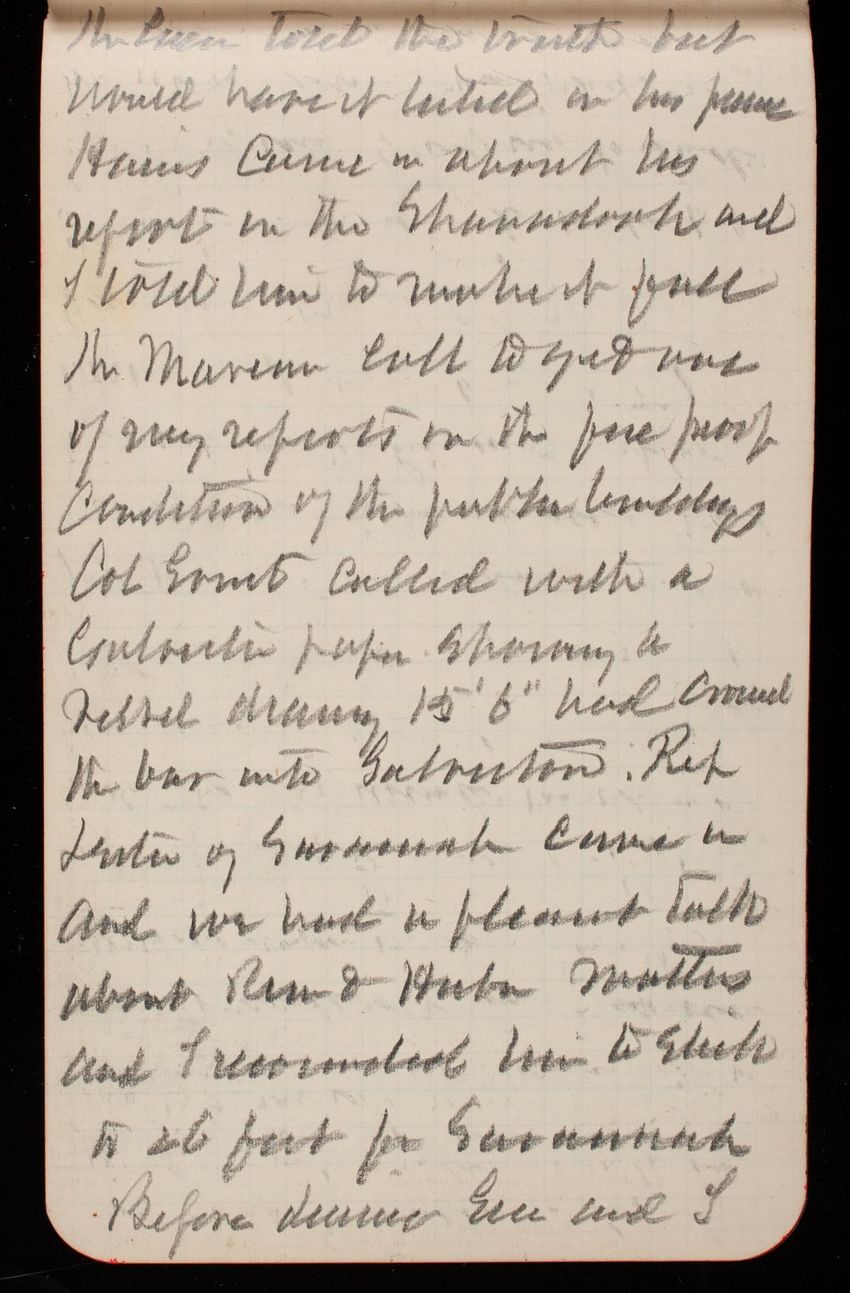 told the truth but
would have it in his
Hains Came in about his
report on the Shanandoah and
I told him to make it full
Mr
of my reports on the fire proof
Condition of the public buildings
Col called with a
paper showing a
vessel drawing 15' 6" had crossed
the bar into Galveston. Rep
Lester of Savannah came in
and we had a pleasant talk
about Riv & Harbr matters
and I him to stick
to 26 feet for Savannah
Before dinner and I